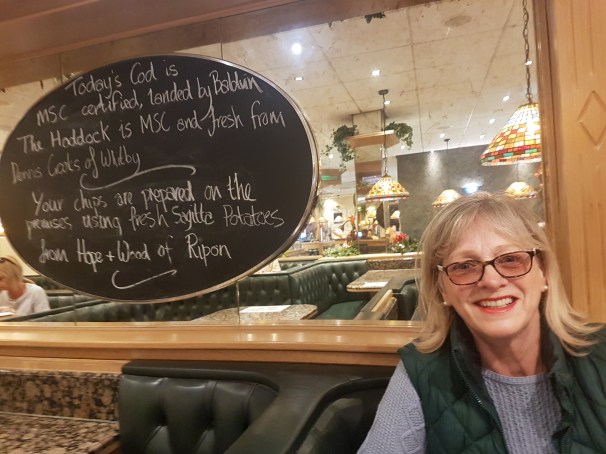 Today's Cod is
MSC certified, landed by Baldwin
The Haddock is MSC and fresh from
Dennis Crooks of Whitby
Your chips are prepared on the
premises using fresh Sagitta Potatoes
from Hope + Wood of Ripon